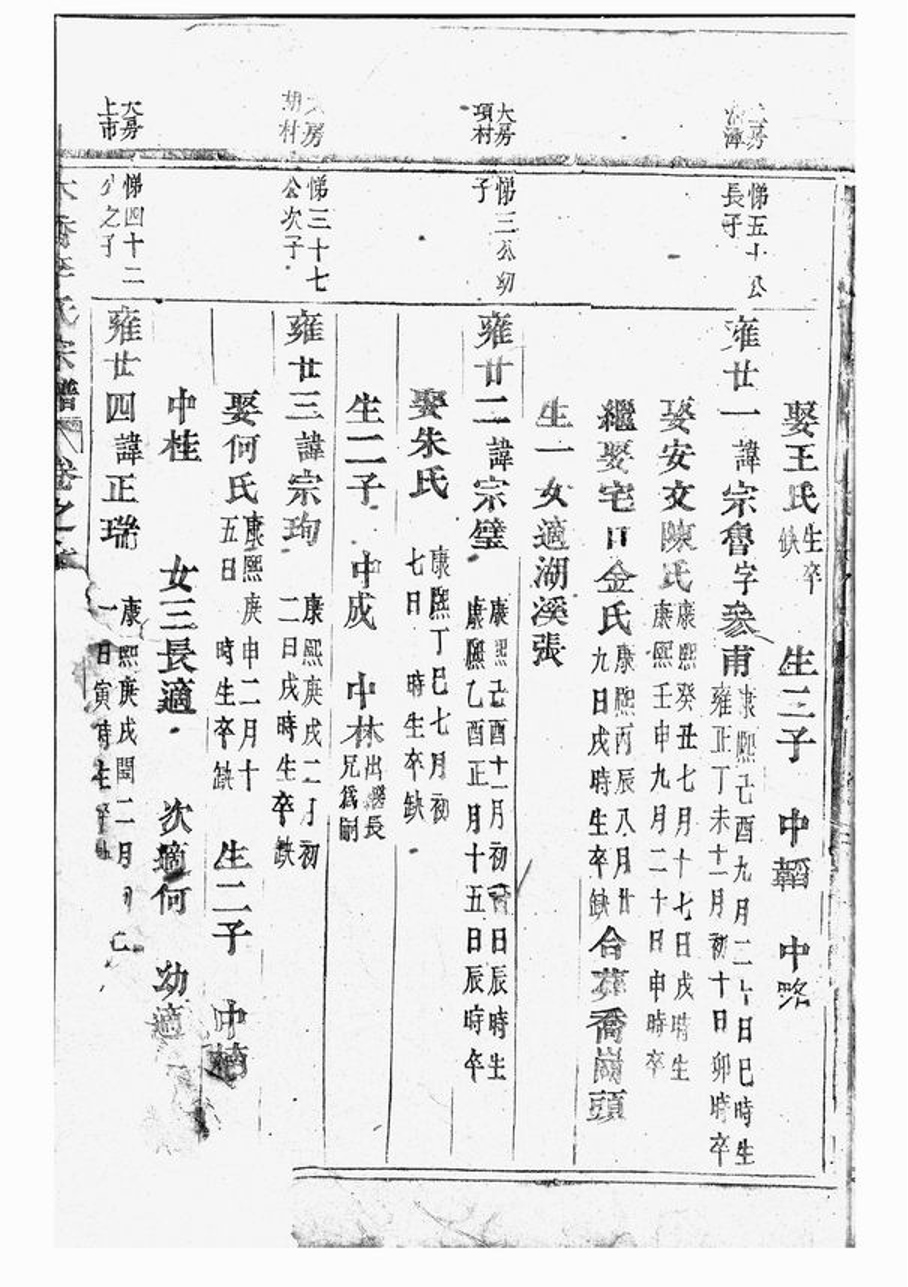 娶王氏 生卒缺 生三子 中韜 中略
大房
悌五十公
長子
雍廿一諱宗魯字參甫 康熙己酉九月二十日巳時生
雍正丁未十一月初十日卯時卒
娶安文陳氏 康熙癸丑七月十七日戌時生
康熙壬申九月二十日申時卒
繼娶宅口金氏 康熙丙辰八月廿
九日戌時生卒缺 合葬喬嶺頭
生一女適湖溪張
大房
項村
悌三公幼
子
雍廿二諱宗璧 康熙己酉十一月初 日辰時生
康熙乙酉正月十五日辰時卒
娶朱氏 康熙丁巳七月初
七日 時生卒缺
生二子 中成 中林 出繼長
兄為嗣
大房
胡村
悌三十七
公次子
雍廿三諱宗珣 康熙庚戌二月初
二日戌時生卒缺
娶何氏 康熙庚申二月十
五日 時生卒缺 生二子 中
中桂 女三長適 次適何 幼適
大房
上市
悌四十二
公之子
雍廿四諱正瑞 康熙庚戌閏二月
一日寅時生卒缺
李氏宗譜 卷之